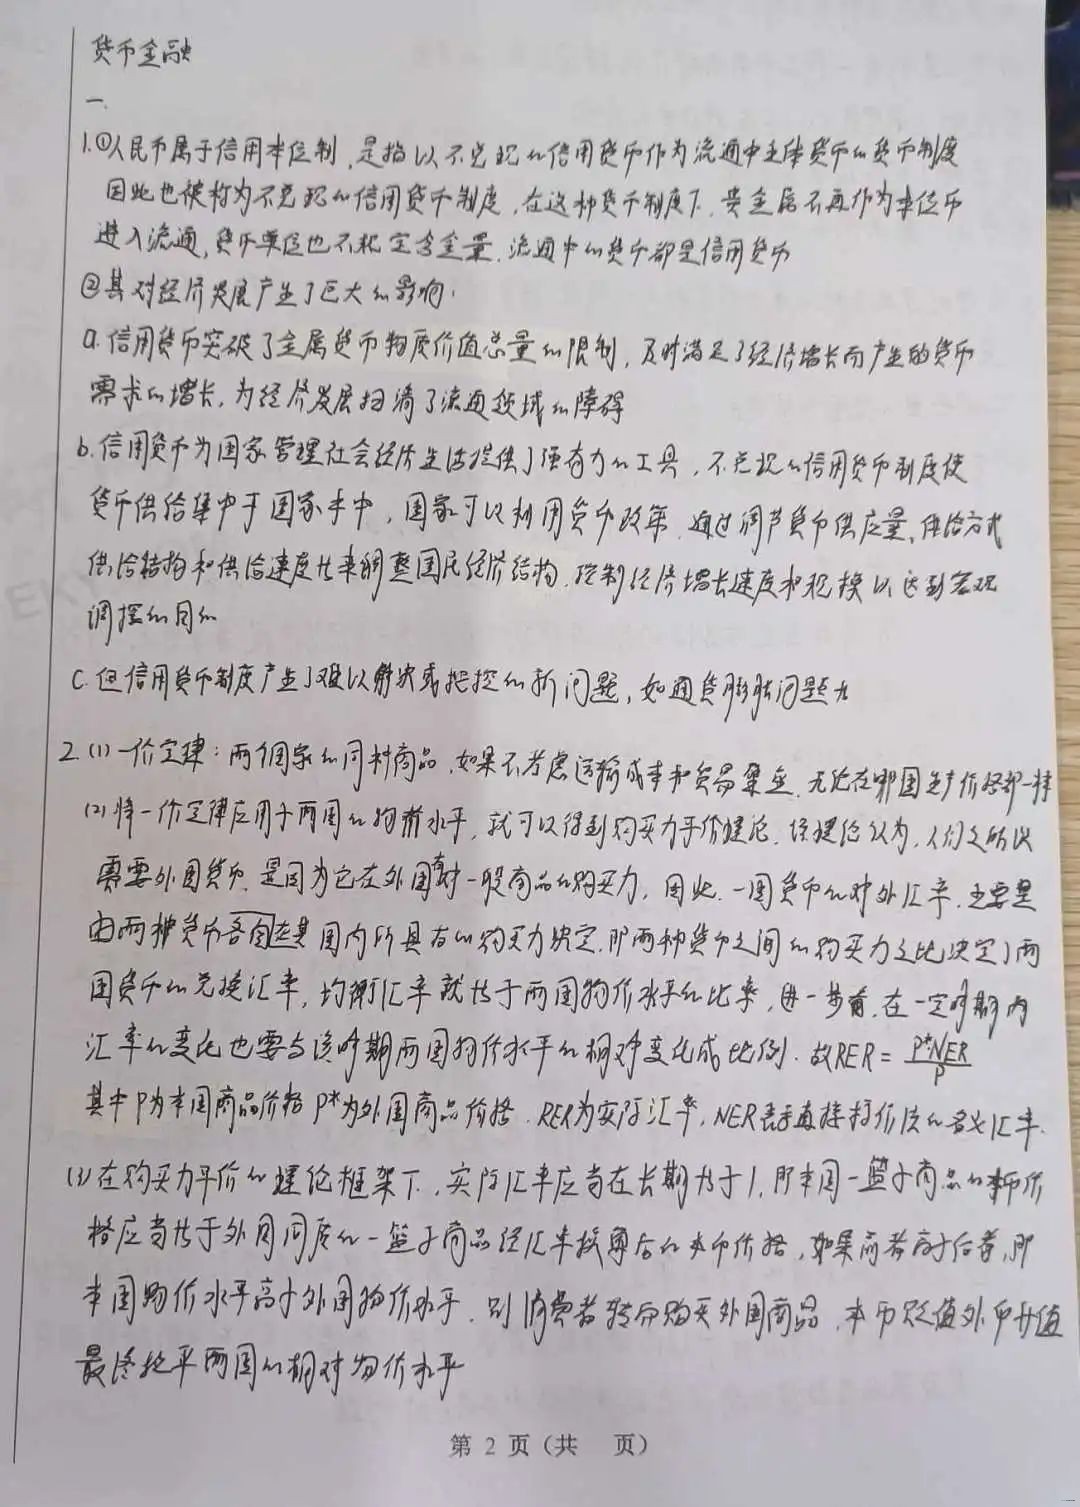 货币金融
一.
1.①人民币属于信用本位制,是指以不兑现的信用货币作为流通中主体货币的货币制度
因此也被称为不兑现的信用货币制度,在这种货币制度下,贵金属不再作为本位币
进入流通,货币单位也不规定含金量,流通中的货币都是信用货币
②其对经济发展产生了巨大的影响:
a.信用货币突破了金属货币物质价值总量的限制,及时满足了经济增长而产生的货币
需求的增长,为经济发展扫清了流通领域的障碍
b.信用货币为国家管理社会经济生活提供了强有力的工具,不兑现的信用货币制度使
货币供给集中于国家手中,国家可以利用货币政策,通过调节货币供应量、供给方式
供给结构和供给速度等来调整国民经济结构,控制经济增长速度和规模以达到宏观
调控的目的
C.但信用货币制度产生了难以解决或把控的新问题,如通货膨胀问题等
2.(1)一价定律:两个国家的同种商品,如果不考虑运输成本和贸易壁垒,无论在哪国生产价格都一样
(2)将一价定律应用于两国的物价水平,就可以得到购买力平价理论,该理论认为,人们之所以
需要外国货币,是因为它在外国有对一般商品的购买力,因此,一国货币的对外汇率,主要是
由两种货币各自在其国内所具有的购买力决定,即两种货币之间的购买力之比决定了两
国货币的兑换汇率,均衡汇率就等于两国物价水平的比率,进一步看,在一定时期内
汇率的变化也要与该时期两国物价水平的相对变化成比例.故RER=P*·NER/P
其中P为本国商品价格 P*为外国商品价格,RER为实际汇率,NER表示直接标价法的名义汇率.
(3)在购买力平价的理论框架下,实际汇率应当在长期等于1,即本国一篮子商品的本币价
格应当等于外国同质的一篮子商品经汇率换算后的本币价格,如果前者高于后者,即
本国物价水平高于外国物价水平,则消费者转而购买外国商品,本币贬值外币升值
最终拉平两国的相对物价水平
第 2 页(共 页)